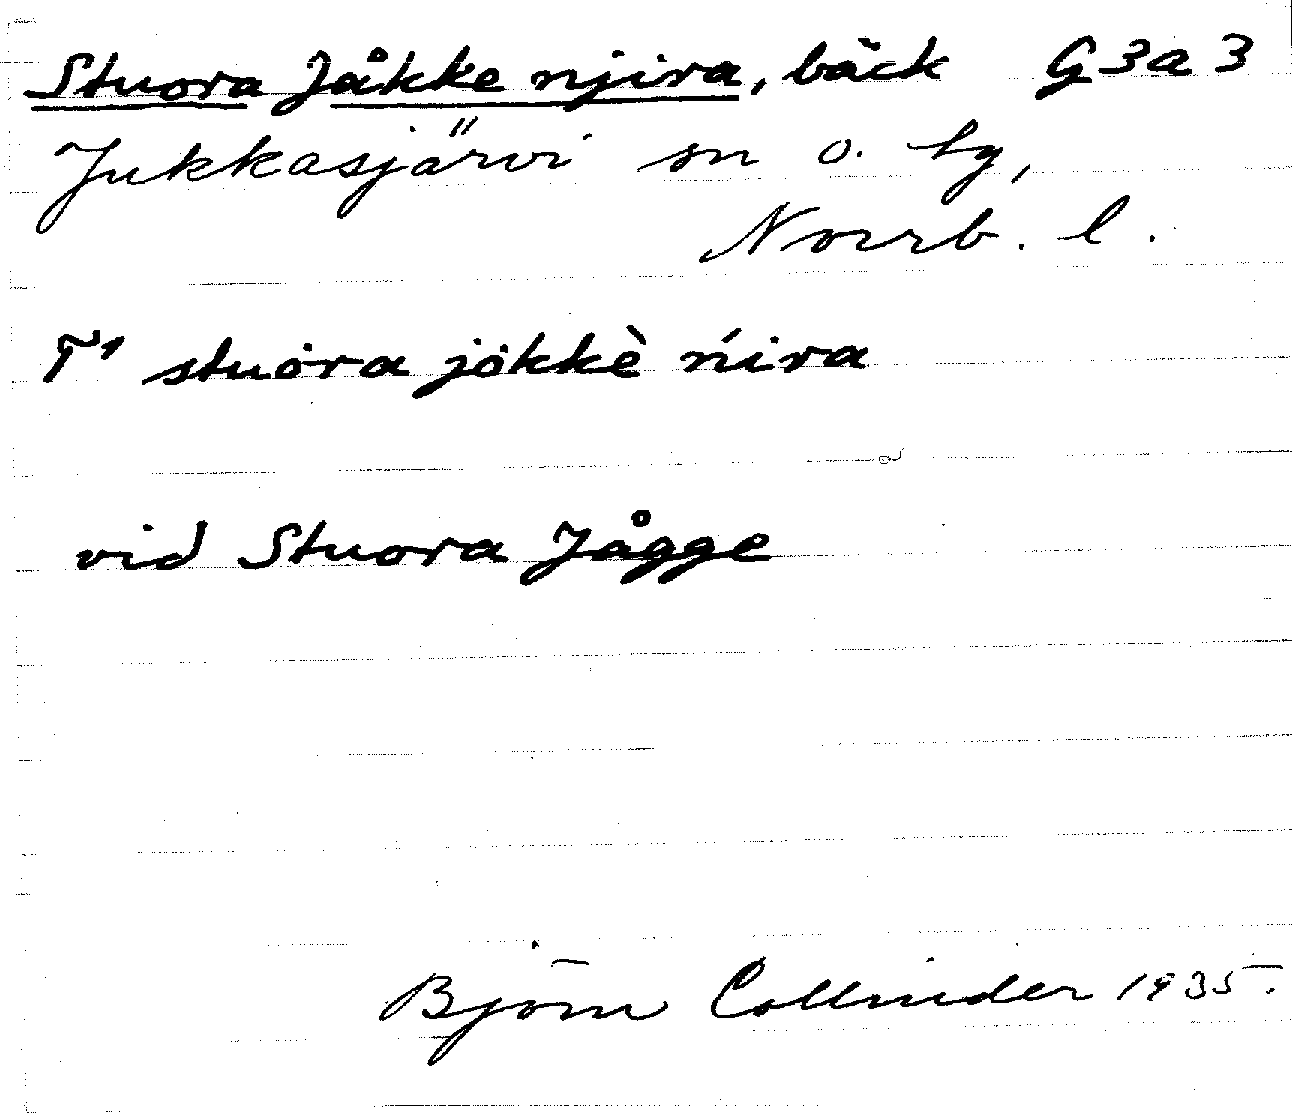 Stuora Jåkke njira, bäck G3a3
Jukkasjärvi sn o. tg,
Norrb. l.
T' stuȯra jȯkkè ńira
vid Stuora Jågge
Björn Collinder 1935.